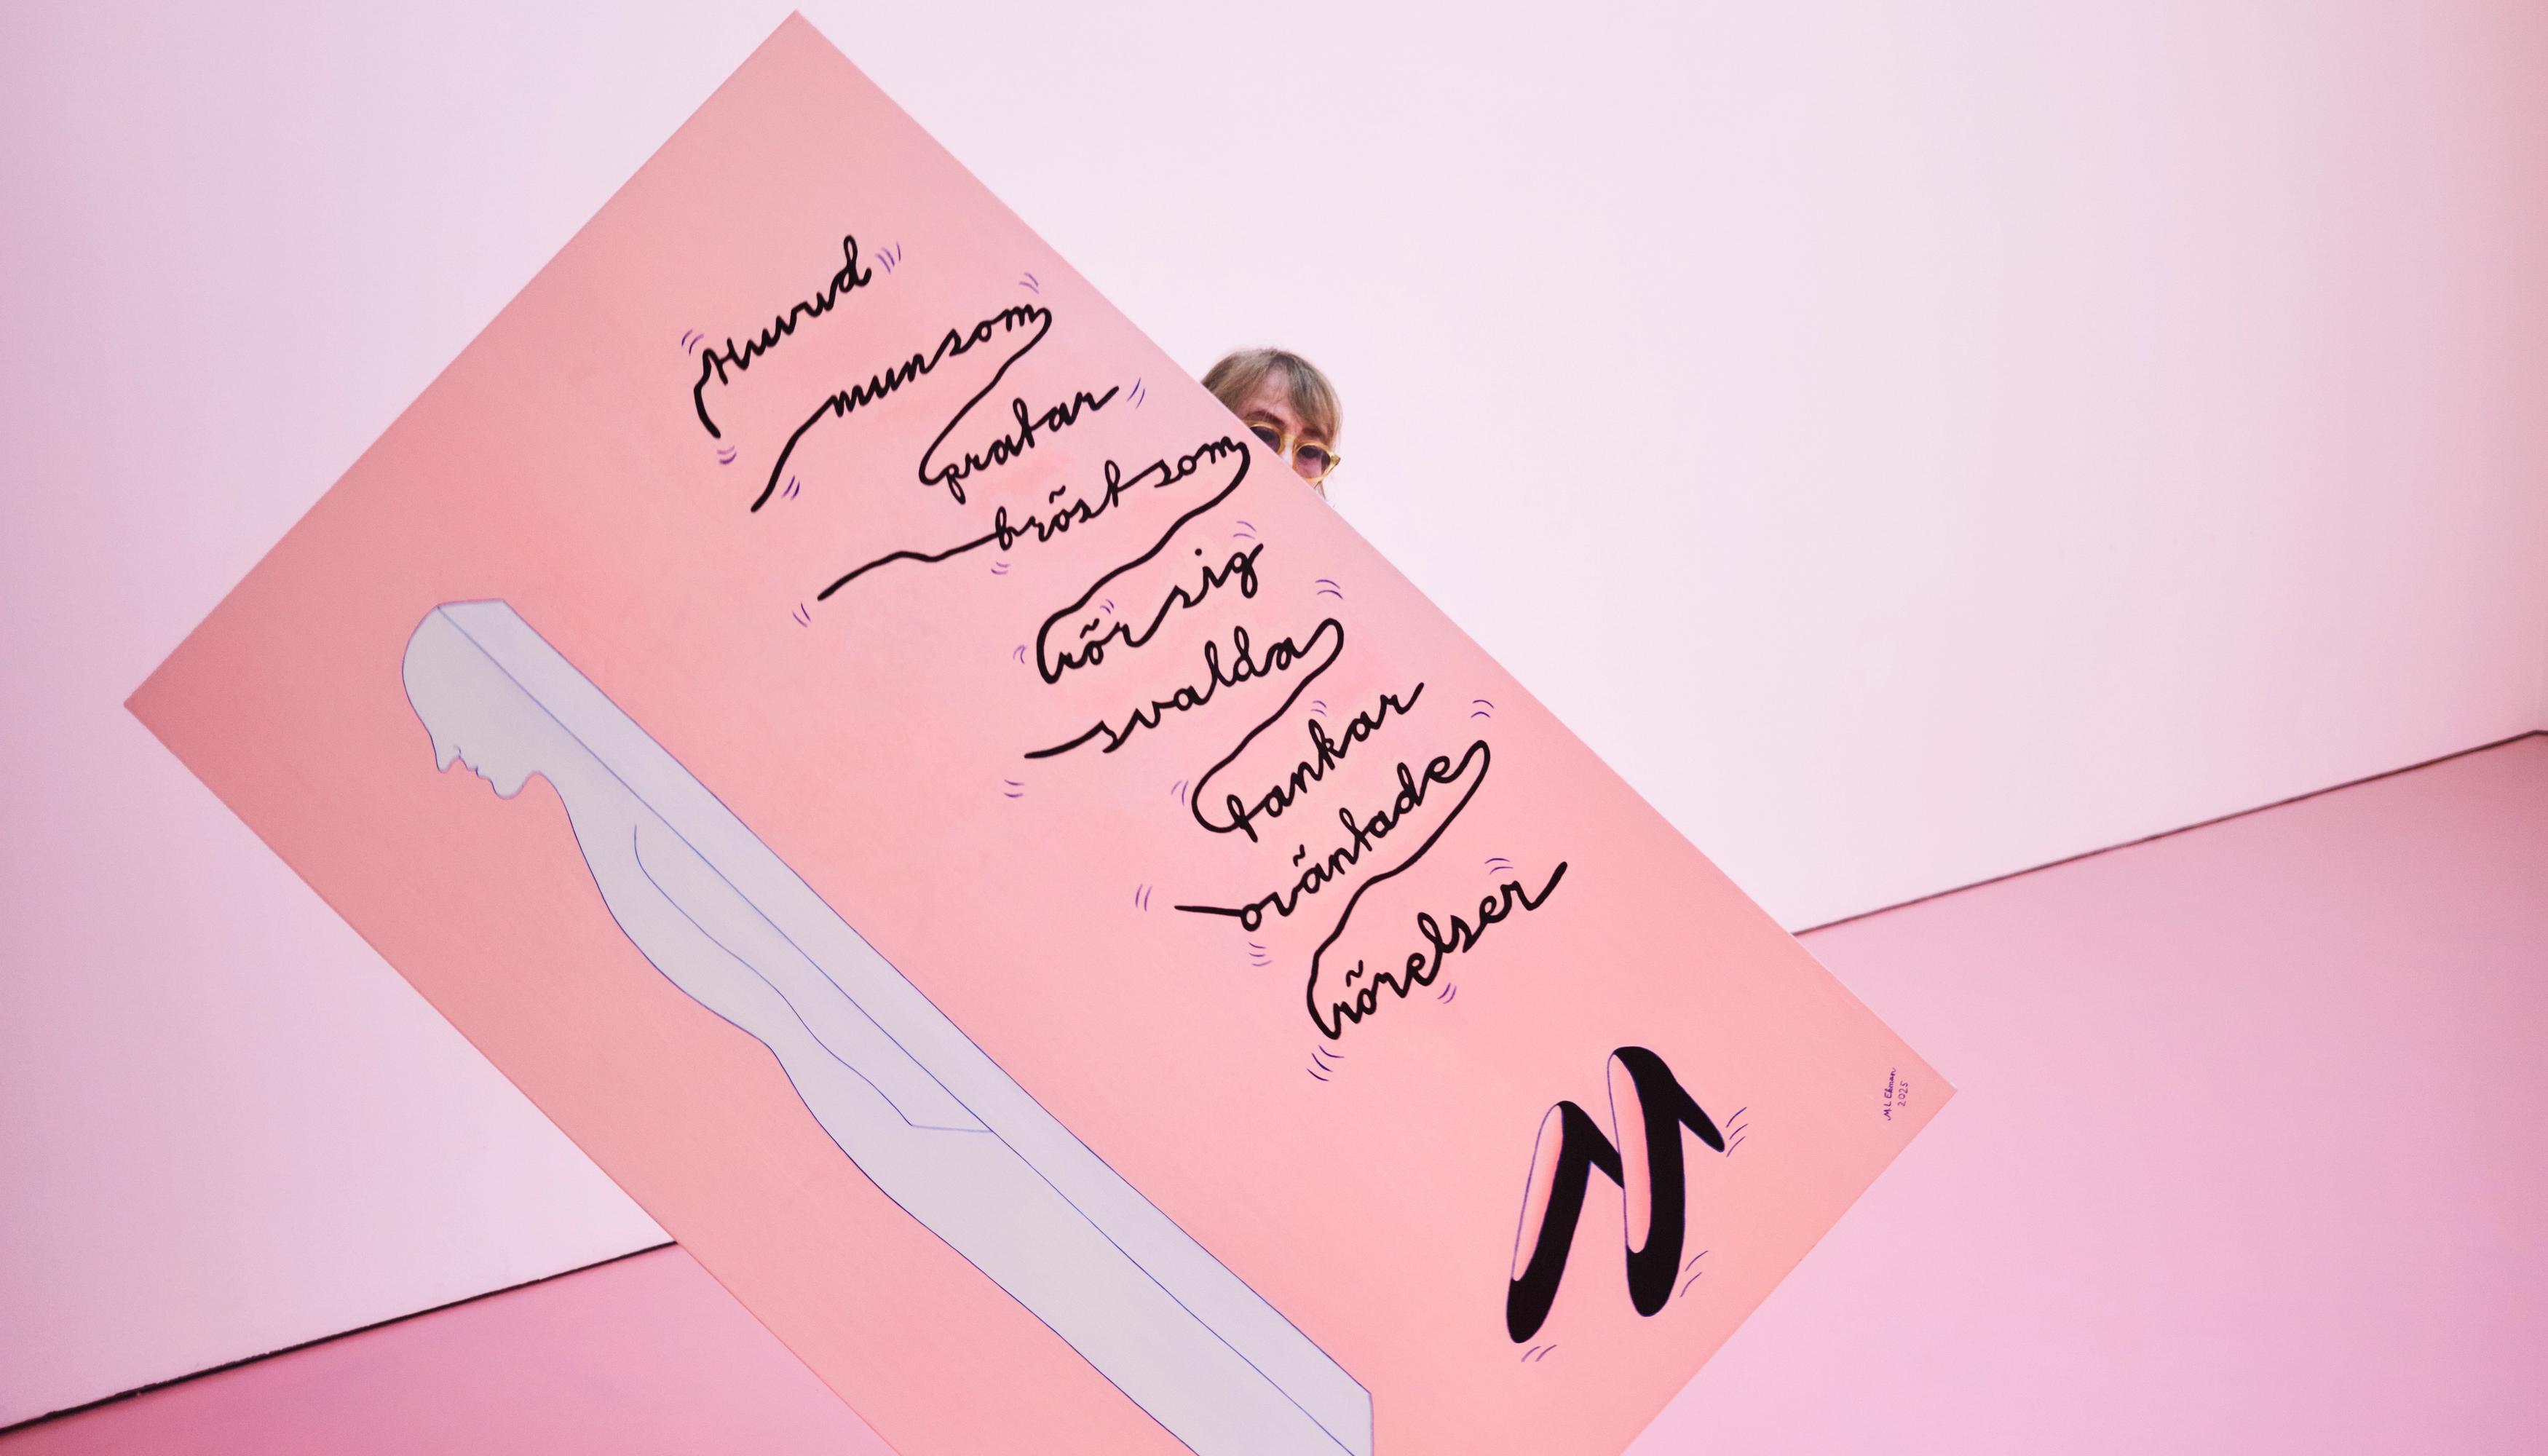 Huvud
mun som
pratar
bröst som
rör sig
svalda
tankar
oväntade
rörelser
M L Ekman
2025